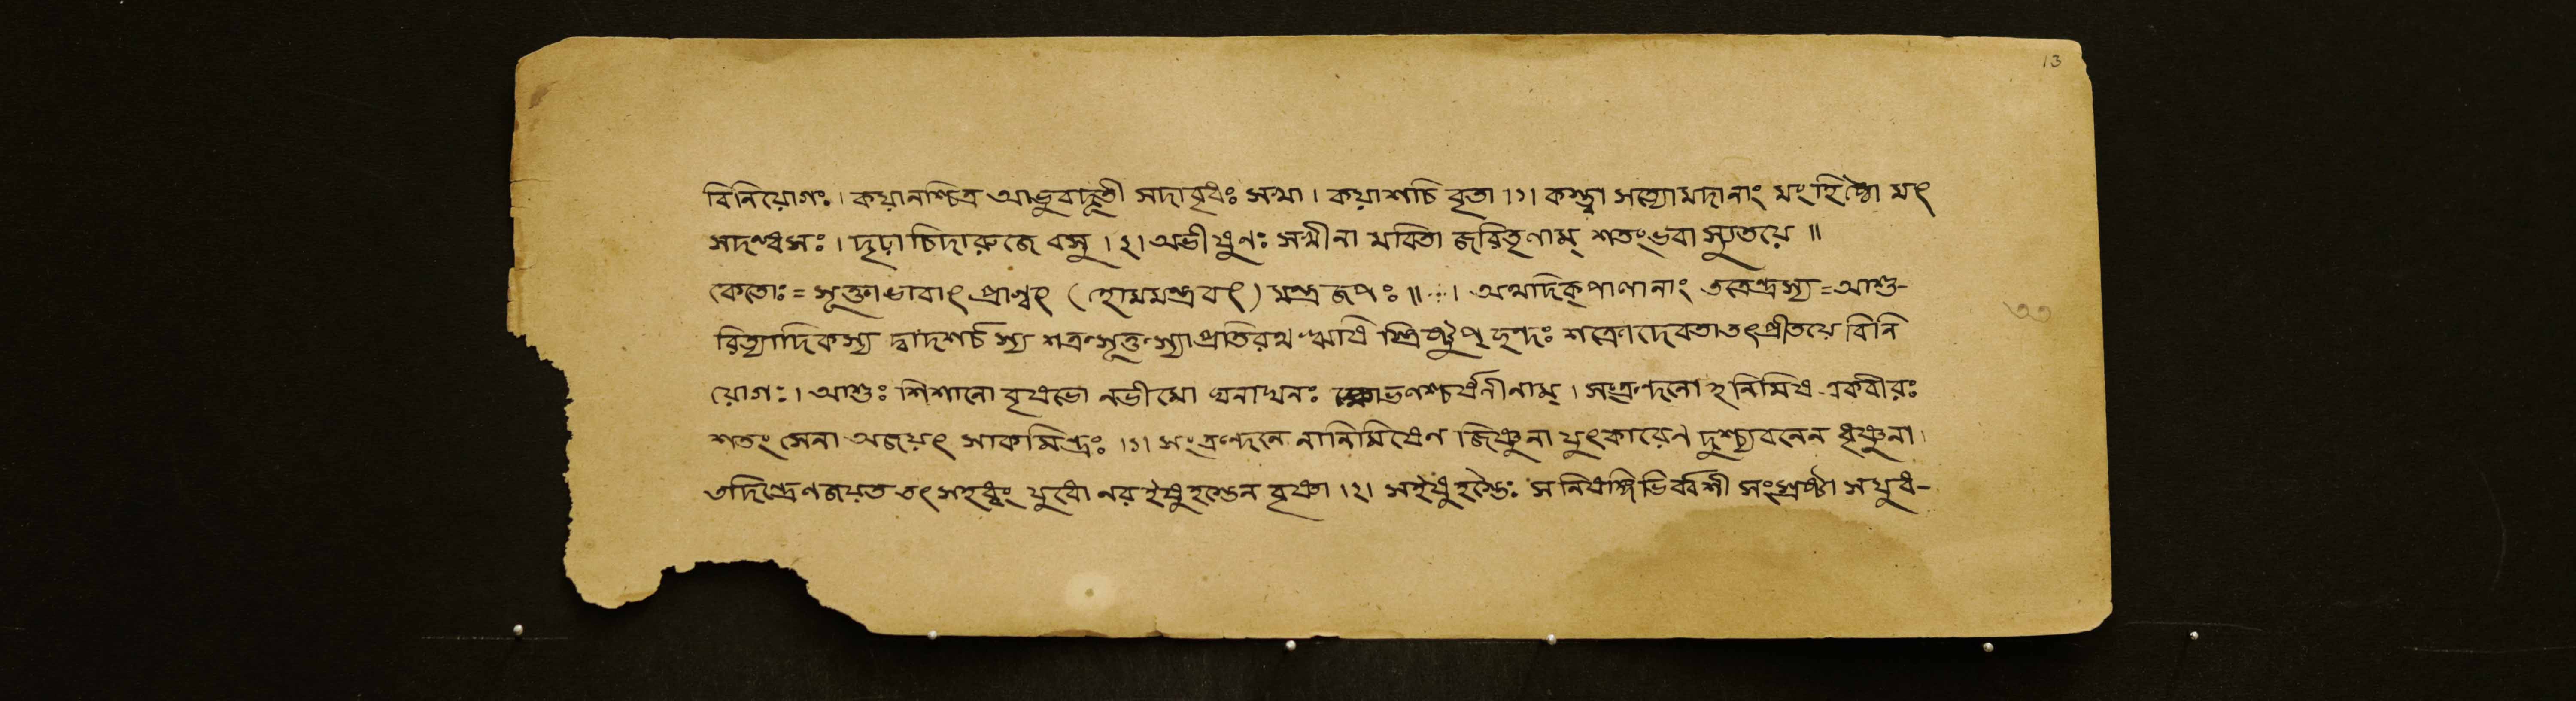 13
বিনিয়োগঃ। কয়ানশ্চিত্র আভুবাদূতী সদাবৃধঃ সখা। কয়াশচি বৃতা ।১। কস্ত্বা সত্যোমদানাং মংহিষ্ঠো মৎ
সদন্ধসঃ। দৃঢ়া চিদারুজে বসু ।২। অভীষুণঃ সখীনা মবিতা জরিতৃণাম্ শতংভবা স্যুতয়ে ॥
কেতোঃ = সূক্তাভাবাৎ প্রাগ্বৎ (হোমমন্ত্রবৎ) মন্ত্রজপঃ ॥ । অথদিক্পালানাং তত্রেন্দ্রস্য = আশু-
রিত্যাদিকস্য দ্বাদশর্চস্য শক্রসূক্তস্যাপ্রতিরথ ঋষি স্ত্রিষ্টুপ্ ছন্দঃ শক্রোদেবতা তৎপ্রীতয়ে বিনি
য়োগঃ। আশুঃ শিশানো বৃষভো নভীমো ঘনাঘনঃ ক্ষোভণশ্চর্ষণীনাম্। সংক্রন্দনো হনিমিষ একবীরঃ
শতং সেনা অজয়ৎ সাকমিন্দ্রঃ ।১। সংক্রন্দনে নানিমিষেণ জিষ্ণুনা যুৎকারেণ দুশ্চ্যবনেন ধৃষ্ণুনা।
তদিন্দ্রেণজয়ত তৎ সহধ্বং যুধো নর ইষুহস্তেন বৃষ্ণা ।২। সইষুহস্তৈঃ সনিষঙ্গিভির্ব্বশী সংস্রষ্টা সযুধ-
৩৩